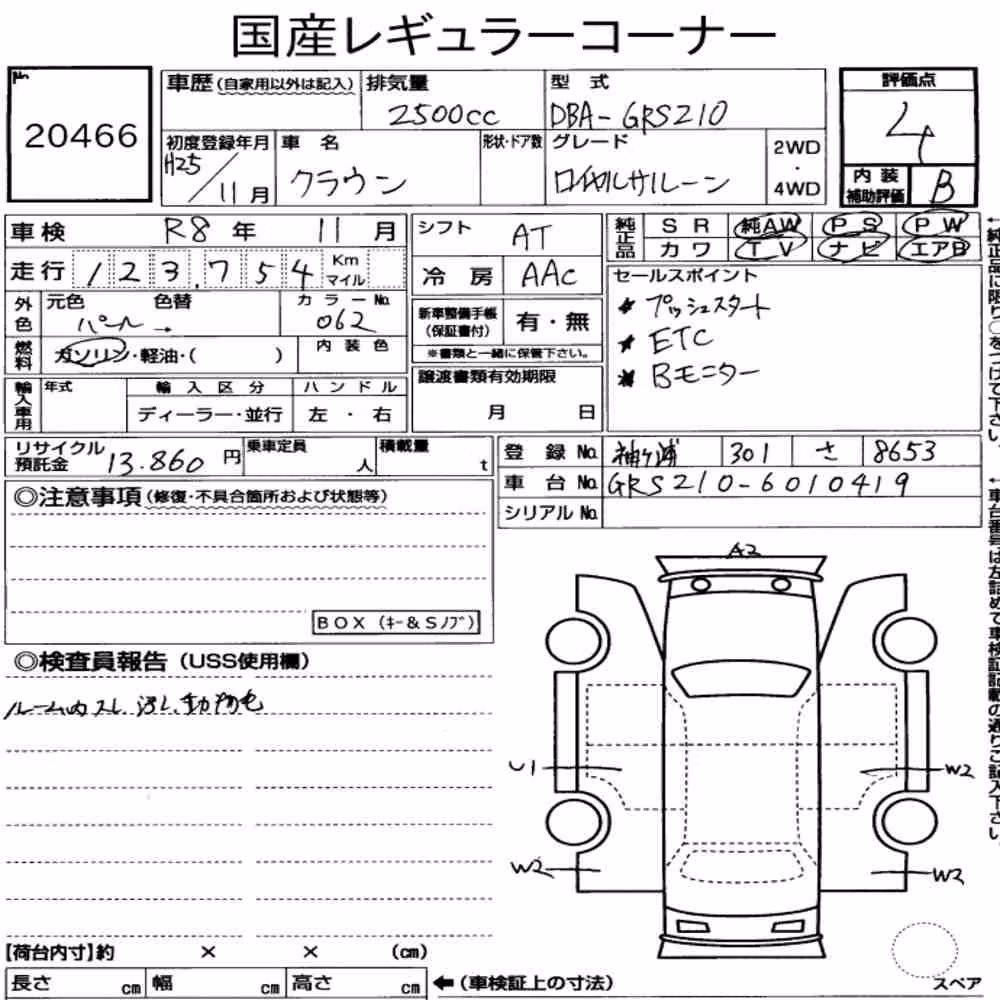 国産レギュラーコーナー
No.
20466
車歴(自家用以外は記入)
排気量
2500cc
型 式
DBA-GRS210
評価点
4
初度登録年月
H25/11月
車 名
クラウン
形状・ドア数
グレード
ロイヤルサルーン
2WD
・
4WD
内 装
補助評価
B
車検 R8年 11月
走行 123,754 Km マイル
シフト AT
冷 房 AAC
純正品
S R 純AW P S P W
カ ワ T V ナビ エアB
外色
元色 色替
パール →
カラーNo.
062
燃料
ガソリン・軽油・( )
内 装 色
新車整備手帳
(保証書付)
有・無
※書類と一緒に保管下さい。
セールスポイント
* プッシュスタート
* ETC
* Bモニター
輸入車用
年式
輸 入 区 分
ディーラー・並行
ハ ン ド ル
左 ・ 右
譲渡書類有効期限
月 日
リサイクル
預託金
13.860 円
乗車定員
人
積載量
t
登 録 No. 袖ヶ浦 301 さ 8653
車 台 No. GRS210-6010419
シリアル No.
◎注意事項(修復・不具合箇所および状態等)
BOX (キー&Sノブ)
◎検査員報告(USS使用欄)
ルーム内スレ
A2
U1
W2
W2
W2
【荷台内寸】約 × × (cm)
長さ cm 幅 cm 高さ cm
←(車検証上の寸法)
スペア
←純正品に限り○をつけて下さい。
←車台番号は左詰めで車検証記載の通りご記入下さい。